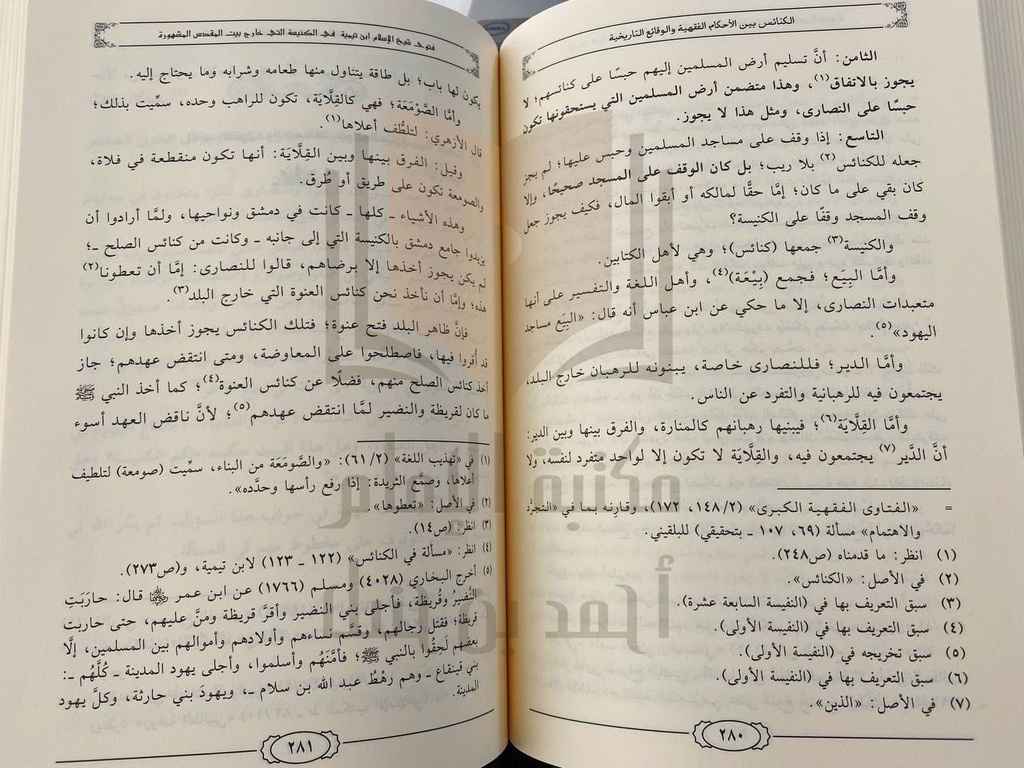 الكنائس بين الأحكام الفقهية والوقائع التاريخية
الثامن: أنَّ تسليم أرض المسلمين إليهم حبسًا على كنائسهم؛ لا
يجوز بالاتفاق(١)، وهذا متضمن أرض المسلمين التي يستحقونها تكون
حبسًا على النصارى، ومثل هذا لا يجوز.
التاسع: إذا وقف على مساجد المسلمين وحبس عليها؛ لم يجز
جعله للكنائس(٢) بلا ريب؛ بل كان الوقف على المسجد صحيحًا، وإلا
كان بقي على ما كان؛ إمَّا حقًّا لمالكه أو أبقوا المال، فكيف يجوز جعل
وقف المسجد وقفًا على الكنيسة؟
والكنيسة(٣) جمعها (كنائس)؛ وهي لأهل الكتابين.
وأمَّا البِيَع؛ فجمع (بِيْعَة)(٤)، وأهل اللغة والتفسير على أنها
متعبدات النصارى، إلا ما حكي عن ابن عباس أنه قال: «البِيَع مساجد
اليهود»(٥).
وأمَّا الدير؛ فللنصارى خاصة، يبنونه للرهبان خارج البلد،
يجتمعون فيه للرهبانية والتفرد عن الناس.
وأمَّا القِلَّايَة(٦)؛ فيبنيها رهبانهم كالمنارة، والفرق بينها وبين الدير:
أنَّ الدَّير(٧) يجتمعون فيه، والقِلَّاية لا تكون إلا لواحد متفرد لنفسه، ولا
= «الفتاوى الفقهية الكبرى» (٢/ ١٤٨، ١٧٢)، وقارنه بما في «التجرُّد
والاهتمام» مسألة (٦٩، ١٠٧ ـ بتحقيقي) للبلقيني.
(١) انظر: ما قدمناه (ص٢٤٨).
(٢) في الأصل: «الكنائس».
(٣) سبق التعريف بها في (النفيسة السابعة عشرة).
(٤) سبق التعريف بها في (النفيسة الأولى).
(٥) سبق تخريجه في (النفيسة الأولى).
(٦) سبق التعريف بها في (النفيسة الأولى).
(٧) في الأصل: «الذين».
٢٨٠
فتوى شيخ الإسلام ابن تيمية في الكنيسة التي خارج بيت المقدس المشهورة
يكون لها باب؛ بل طاقة يتناول منها طعامه وشرابه وما يحتاج إليه.
وأمَّا الصَّوْمَعَة؛ فهي كالقِلَّايَة، تكون للراهب وحده، سمِّيت بذلك؛
قال الأزهري: لتلطُّف أعلاها(١).
وقيل: الفرق بينها وبين القِلَّايَة: أنها تكون منقطعة في فلاة،
والصومعة تكون على طريق أو طُرق.
وهذه الأشياء ـ كلها ـ كانت في دمشق ونواحيها، ولمَّا أرادوا أن
يزيدوا جامع دمشق بالكنيسة التي إلى جانبه ـ وكانت من كنائس الصلح ـ؛
لم يكن يجوز أخذها إلا برضاهم، قالوا للنصارى: إمَّا أن تعطونا(٢)
هذه؛ وإمَّا أن نأخذ نحن كنائس العنوة التي خارج البلد(٣).
فإنَّ ظاهر البلد فتح عنوة؛ فتلك الكنائس يجوز أخذها وإن كانوا
قد أقروا فيها، فاصطلحوا على المعاوضة، ومتى انتقض عهدهم؛ جاز
أخذ كنائس الصلح منهم، فضلًا عن كنائس العنوة(٤)؛ كما أخذ النبي ﷺ
ما كان لقريظة والنضير لمَّا انتقض عهدهم(٥)؛ لأنَّ ناقض العهد أسوء
(١) في «تهذيب اللغة» (٦١/٢): «والصَّومَعَة من البناء، سمِّيت (صومعة) لتلطيف
أعلاها، وصمَّع الثريدة: إذا رفع رأسها وحدَّده».
(٢) في الأصل: «تعطوها».
(٣) انظر: (ص١٤).
(٤) انظر: «مسألة في الكنائس» (١٢٢ ـ ١٢٣) لابن تيمية، و(ص٢٧٣).
(٥) أخرج البخاري (٤٠٢٨) ومسلم (١٧٦٦) عن ابن عمر ﷺ قال: حارَبَتِ
النَّضيرُ وقُريظة، فأجلى بني النضير وأقرَّ قريظة ومنَّ عليهم، حتى حاربت
قريظة؛ فقتل رجالهم، وقسَّم نساءهم وأولادهم وأموالهم بين المسلمين، إلَّا
بعضهم لَحِقُوا بالنبي ﷺ؛ فأمَّنَهُم وأسلموا، وأجلى يهود المدينة ـ كُلَّهُم ـ:
بني قينقاع ـ وهم رهْطُ عبد الله بن سلام ـ، ويهودَ بني حارثة، وكلَّ يهود
المدينة.
٢٨١